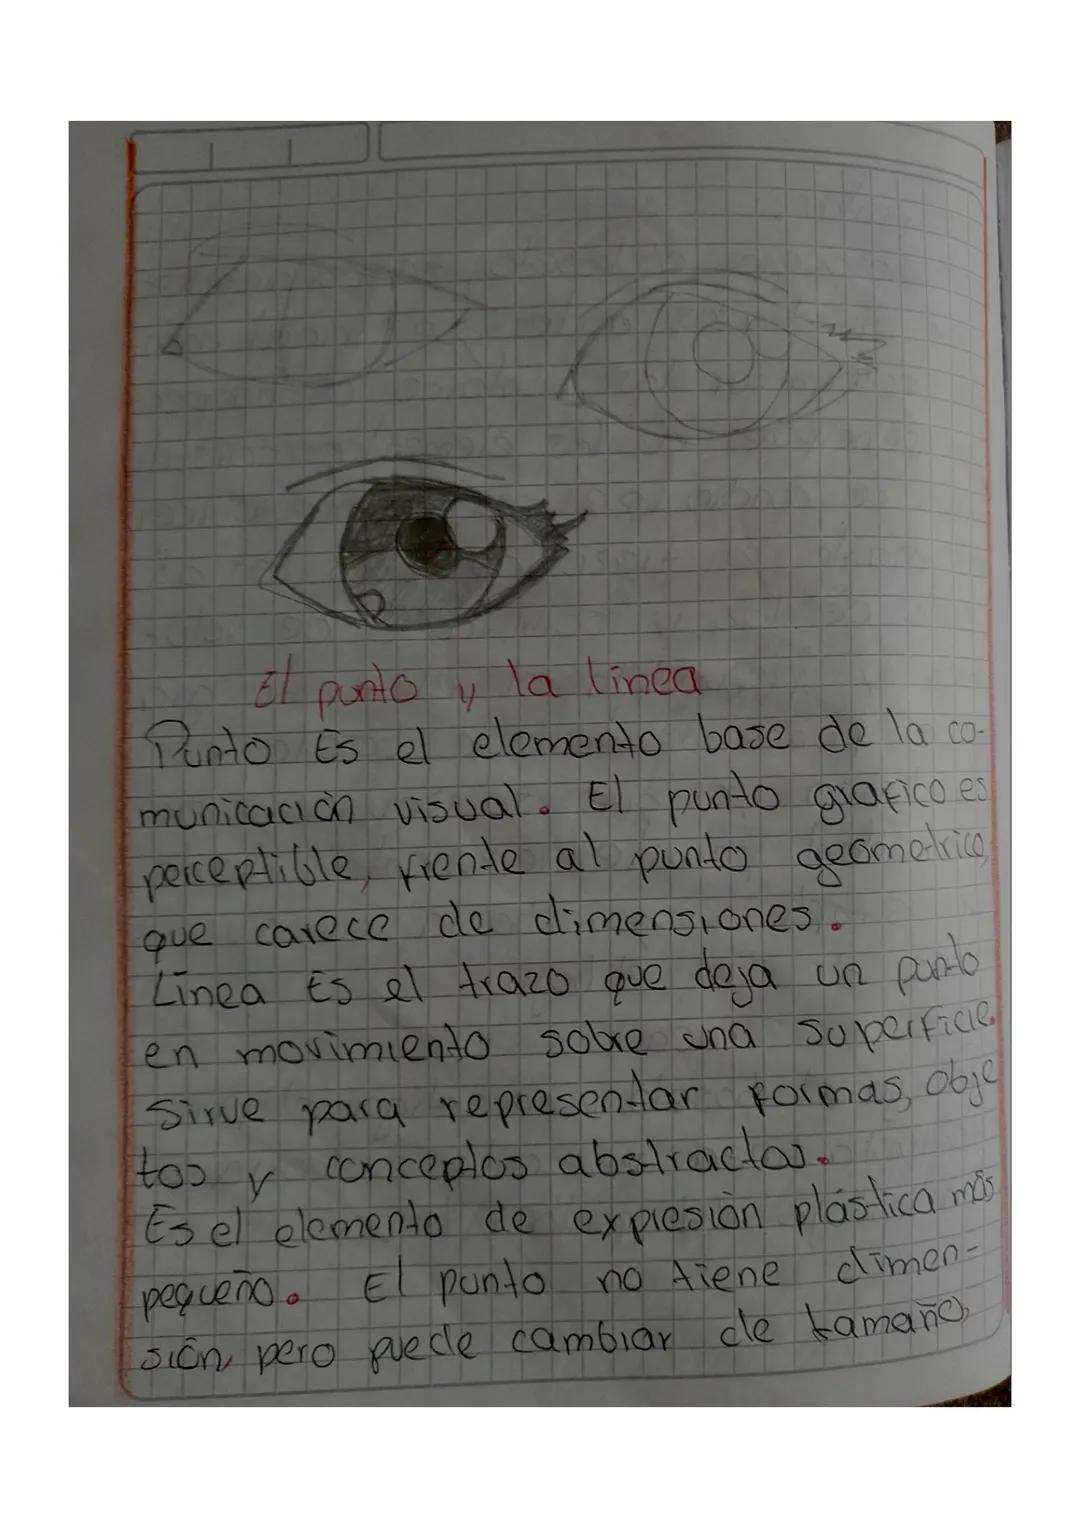 El punto y la linea
Punto Es el elemento base de la co-
municación visual. El punto grafico es
perceptible, frente al punto geometrico,
que carece de dimensiones.
Linea Es el trazo que deja un punto
en movimiento sobre una superficie.
Sirve para representar formas, obje
tos y conceptos abstractos.
Es el elemento de expresión plástica más
pequeño. El punto no tiene dimen-
sión, pero puede cambiar de tamaño,